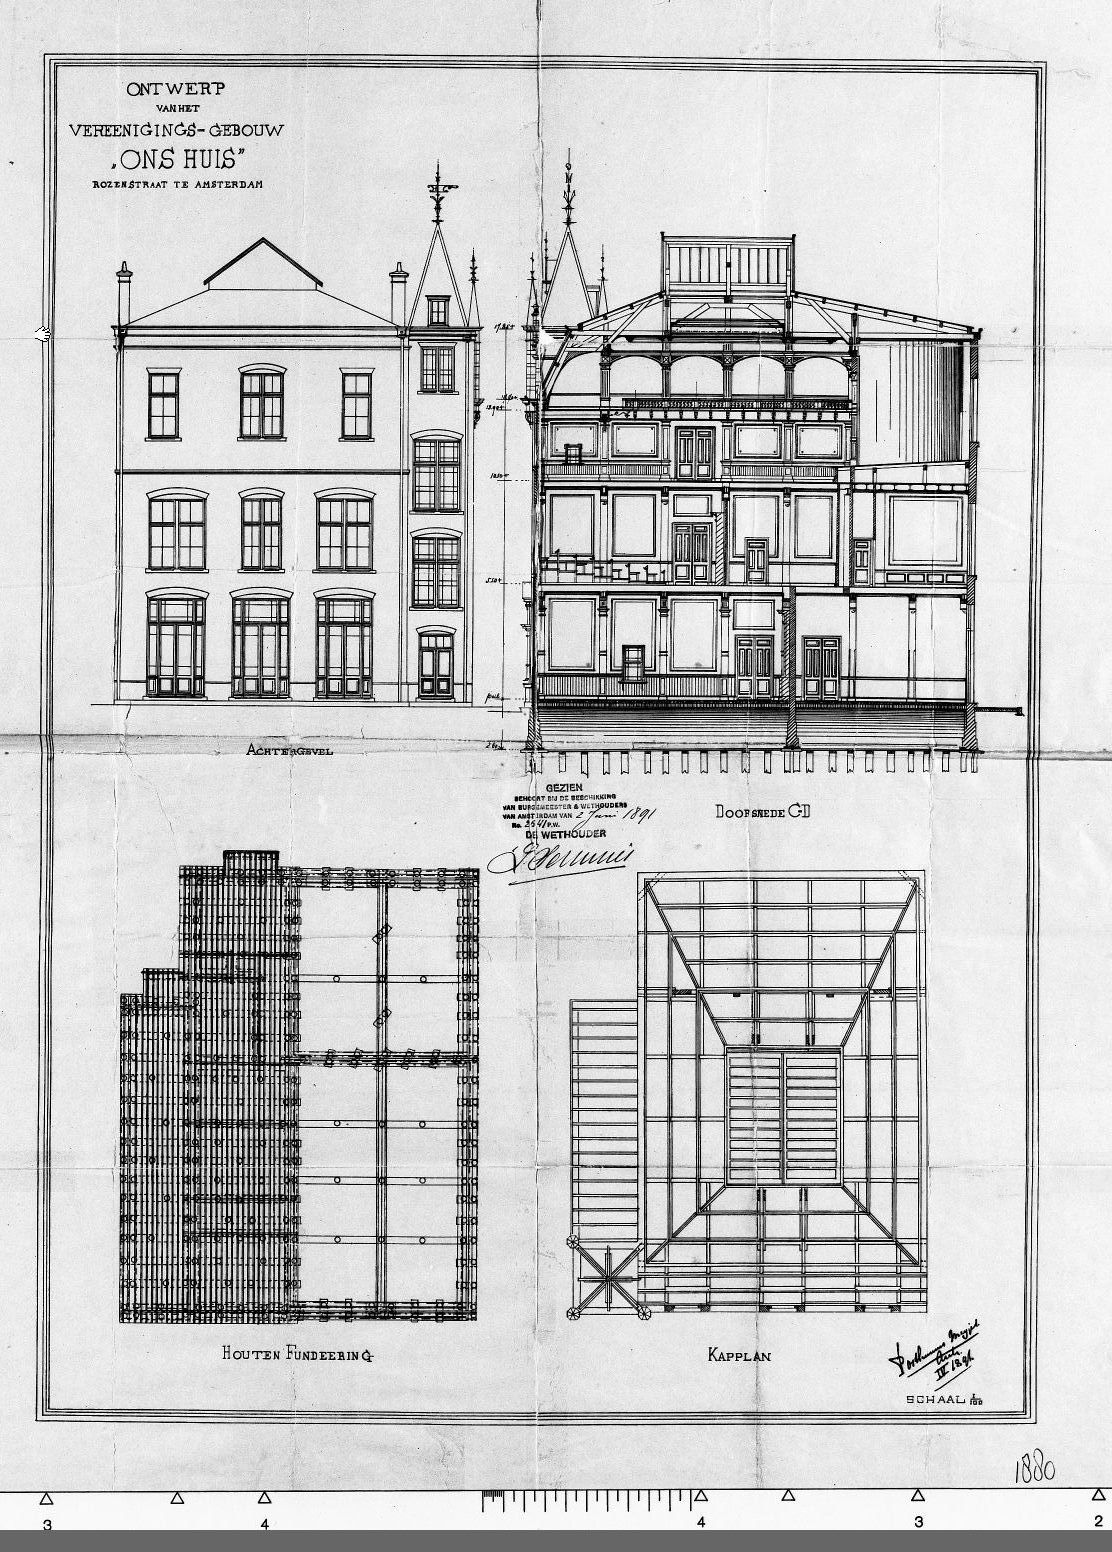 ONTWERP
VAN HET
VEREENIGINGS-GEBOUW
„ONS HUIS”
ROZENSTRAAT TE AMSTERDAM
ACHTERGEVEL
GEZIEN
BEHOORT BIJ DE BESCHIKKING
VAN BURGEMEESTER & WETHOUDERS
VAN AMSTERDAM VAN 2 Juni 1891
No. 2641 P.W.
DE WETHOUDER
DOORSNEDE C-D
HOUTEN FUNDEERING
KAPPLAN
Arch.
SCHAAL 1/100
1880
3 4 4 3 2